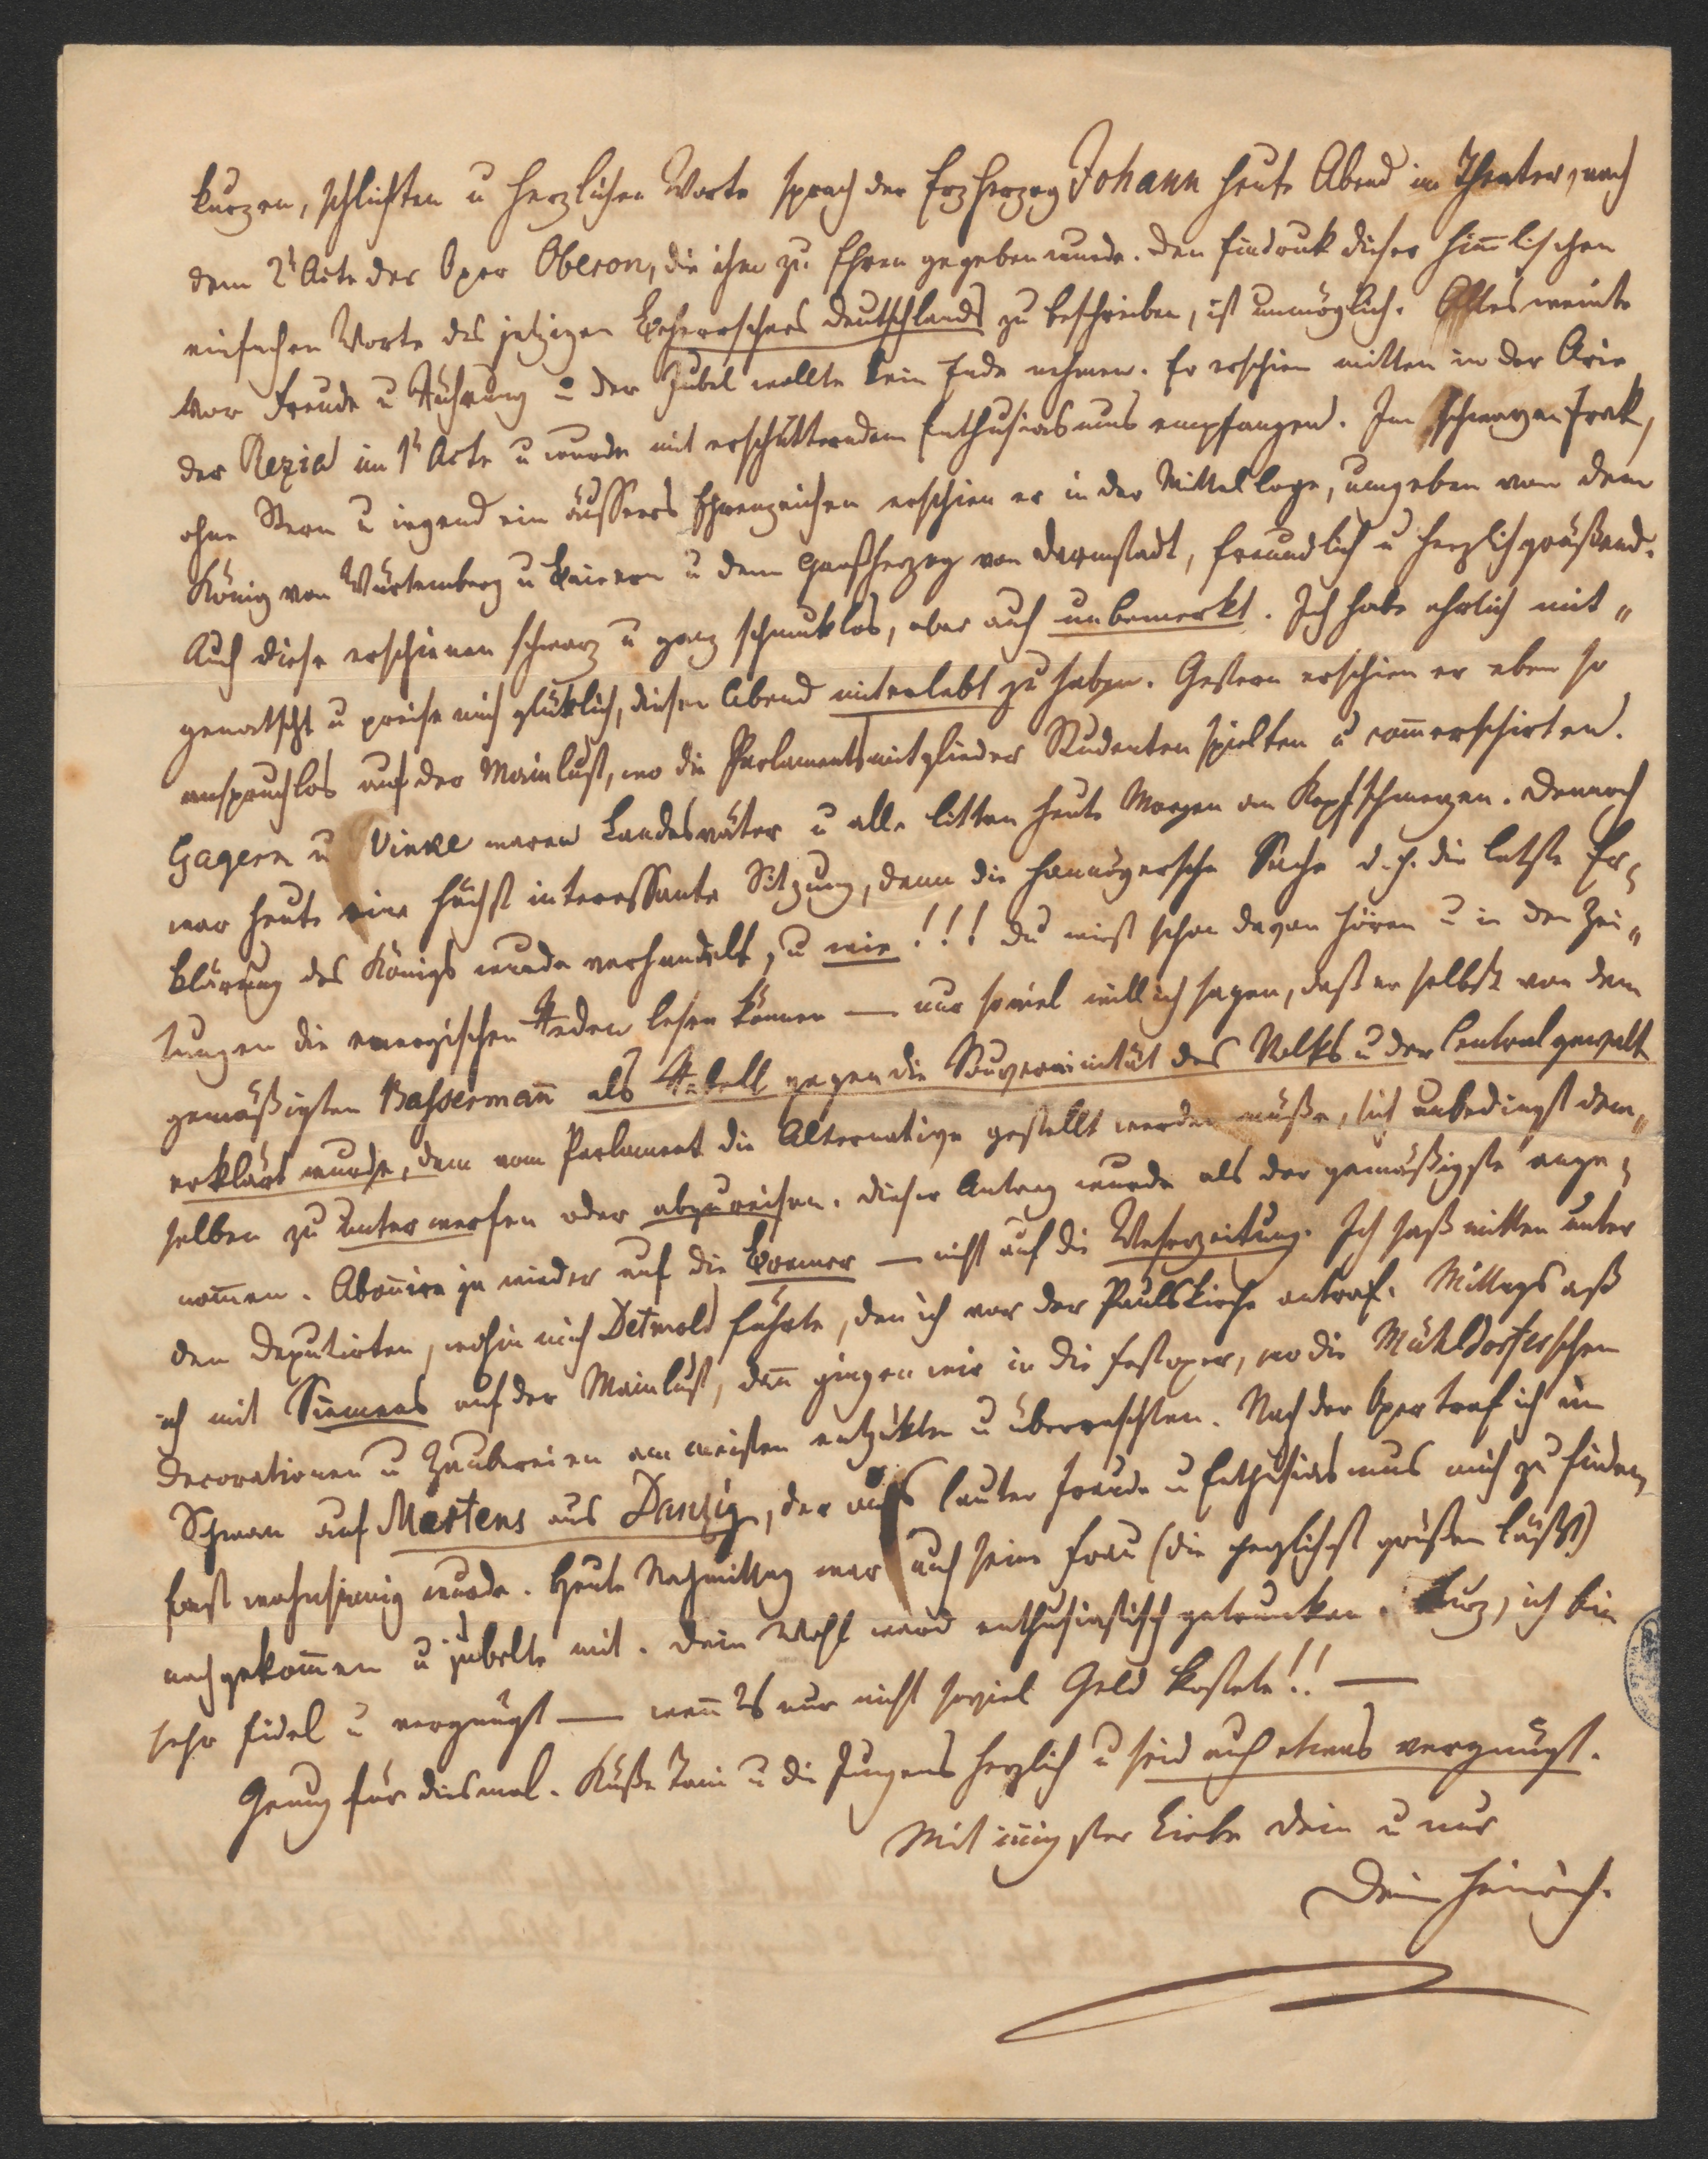 kurzen, schlichten u herzlichen Worte sprach der Erzherzog Johann heute Abend im Theater, nach
dem 2t Acte der Oper Oberon, die ihm zu Ehren gegeben wurde. Den Eindruk dieser himlischen
einfachen Worte des jetzigen Beherrschers Deutschlands zu beschreiben, ist unmöglich. Alles weinte
vor Freude u Rührung u der Jubel wollte kein Ende nehmen. Er erschien mitten in der Arie
der Rezia im 1t Acte u wurde mit erschütterndem Enthusiasmus empfangen. Im schwarzen Frak,
ohne Stern u irgend ein äusseres Ehrenzeichen erschien er in der Mittelloge, umgeben von dem
König von Würtemberg u Baiern u dem Großherzog von Darmstadt, freundlich u herzlich grüßend.
Auch diese erschienen schwarz u ganz schmuklos, aber auch unbemerkt. Ich habe ehrlich mit„
genatscht u preise mich glüklich, diesen Abend miterlebt zu haben. Gestern erschien er eben so
anspruchlos auf der Mainlust, wo die Parlamentsmitglieder Studenten spielten u comerschirten.
Gagern u Vinke waren Landesväter u alle litten heute Morgen an Kopfschmerzen. Dennoch
war heute eine höchst interessante Sitzung, denn die hanöversche Sache d. h. die letzte Er„
klärung des Königs wurde verhandelt, u wie!!! Du wirst schon davon hören u in den Zei„
tungen die energischen Reden lesen können — nur soviel will ich sagen, daß er selbst von dem
gemäßigten Bassermañ als Rebell gegen die Souverainität des Volks u der Centralgewalt
erklärt wurde, dem vom Parlament die Alternative gestellt werden müße, sich unbedingt dem„
selben zu unterwerfen oder abzureisen. Dieser Antrag wurde als der gemäßigste ange„
nomen. Aboñire ja wieder auf die Bremer — nicht auf die Weserzeitung. Ich saß mitten unter
den Deputirten, wohin mich Detmold führte, den ich vor der Paulskirche antraf. Mittags aß
ich mit Siemens auf der Mainlust, dañ gingen wir in die Festoper, wo die Mühldorferschen
Decorationen u Zaubereien am meisten entzükten u überraschten. Nach der Oper traf ich im
Schwan auf Martens aus Danzig, der aus lauter Freude u Enthusiasmus mich zu finden,
fast wahnsinnig wurde. Heute Nachmittag war auch seine Frau (die herzlichst grüßen läßt)
nachgekomen u jubelte mit. Dein Wohl ward enthusiastisch getrunken. Kurz, ich bin
sehr fidel u vergnügt — weñ es nur nicht soviel Geld kostete!! —
Genug für diesmal. Küße Toni u die Jungens herzlich u seid auch etwas vergnügt.
Mit iñigster Liebe Dein u nur
Dein Heinrich.